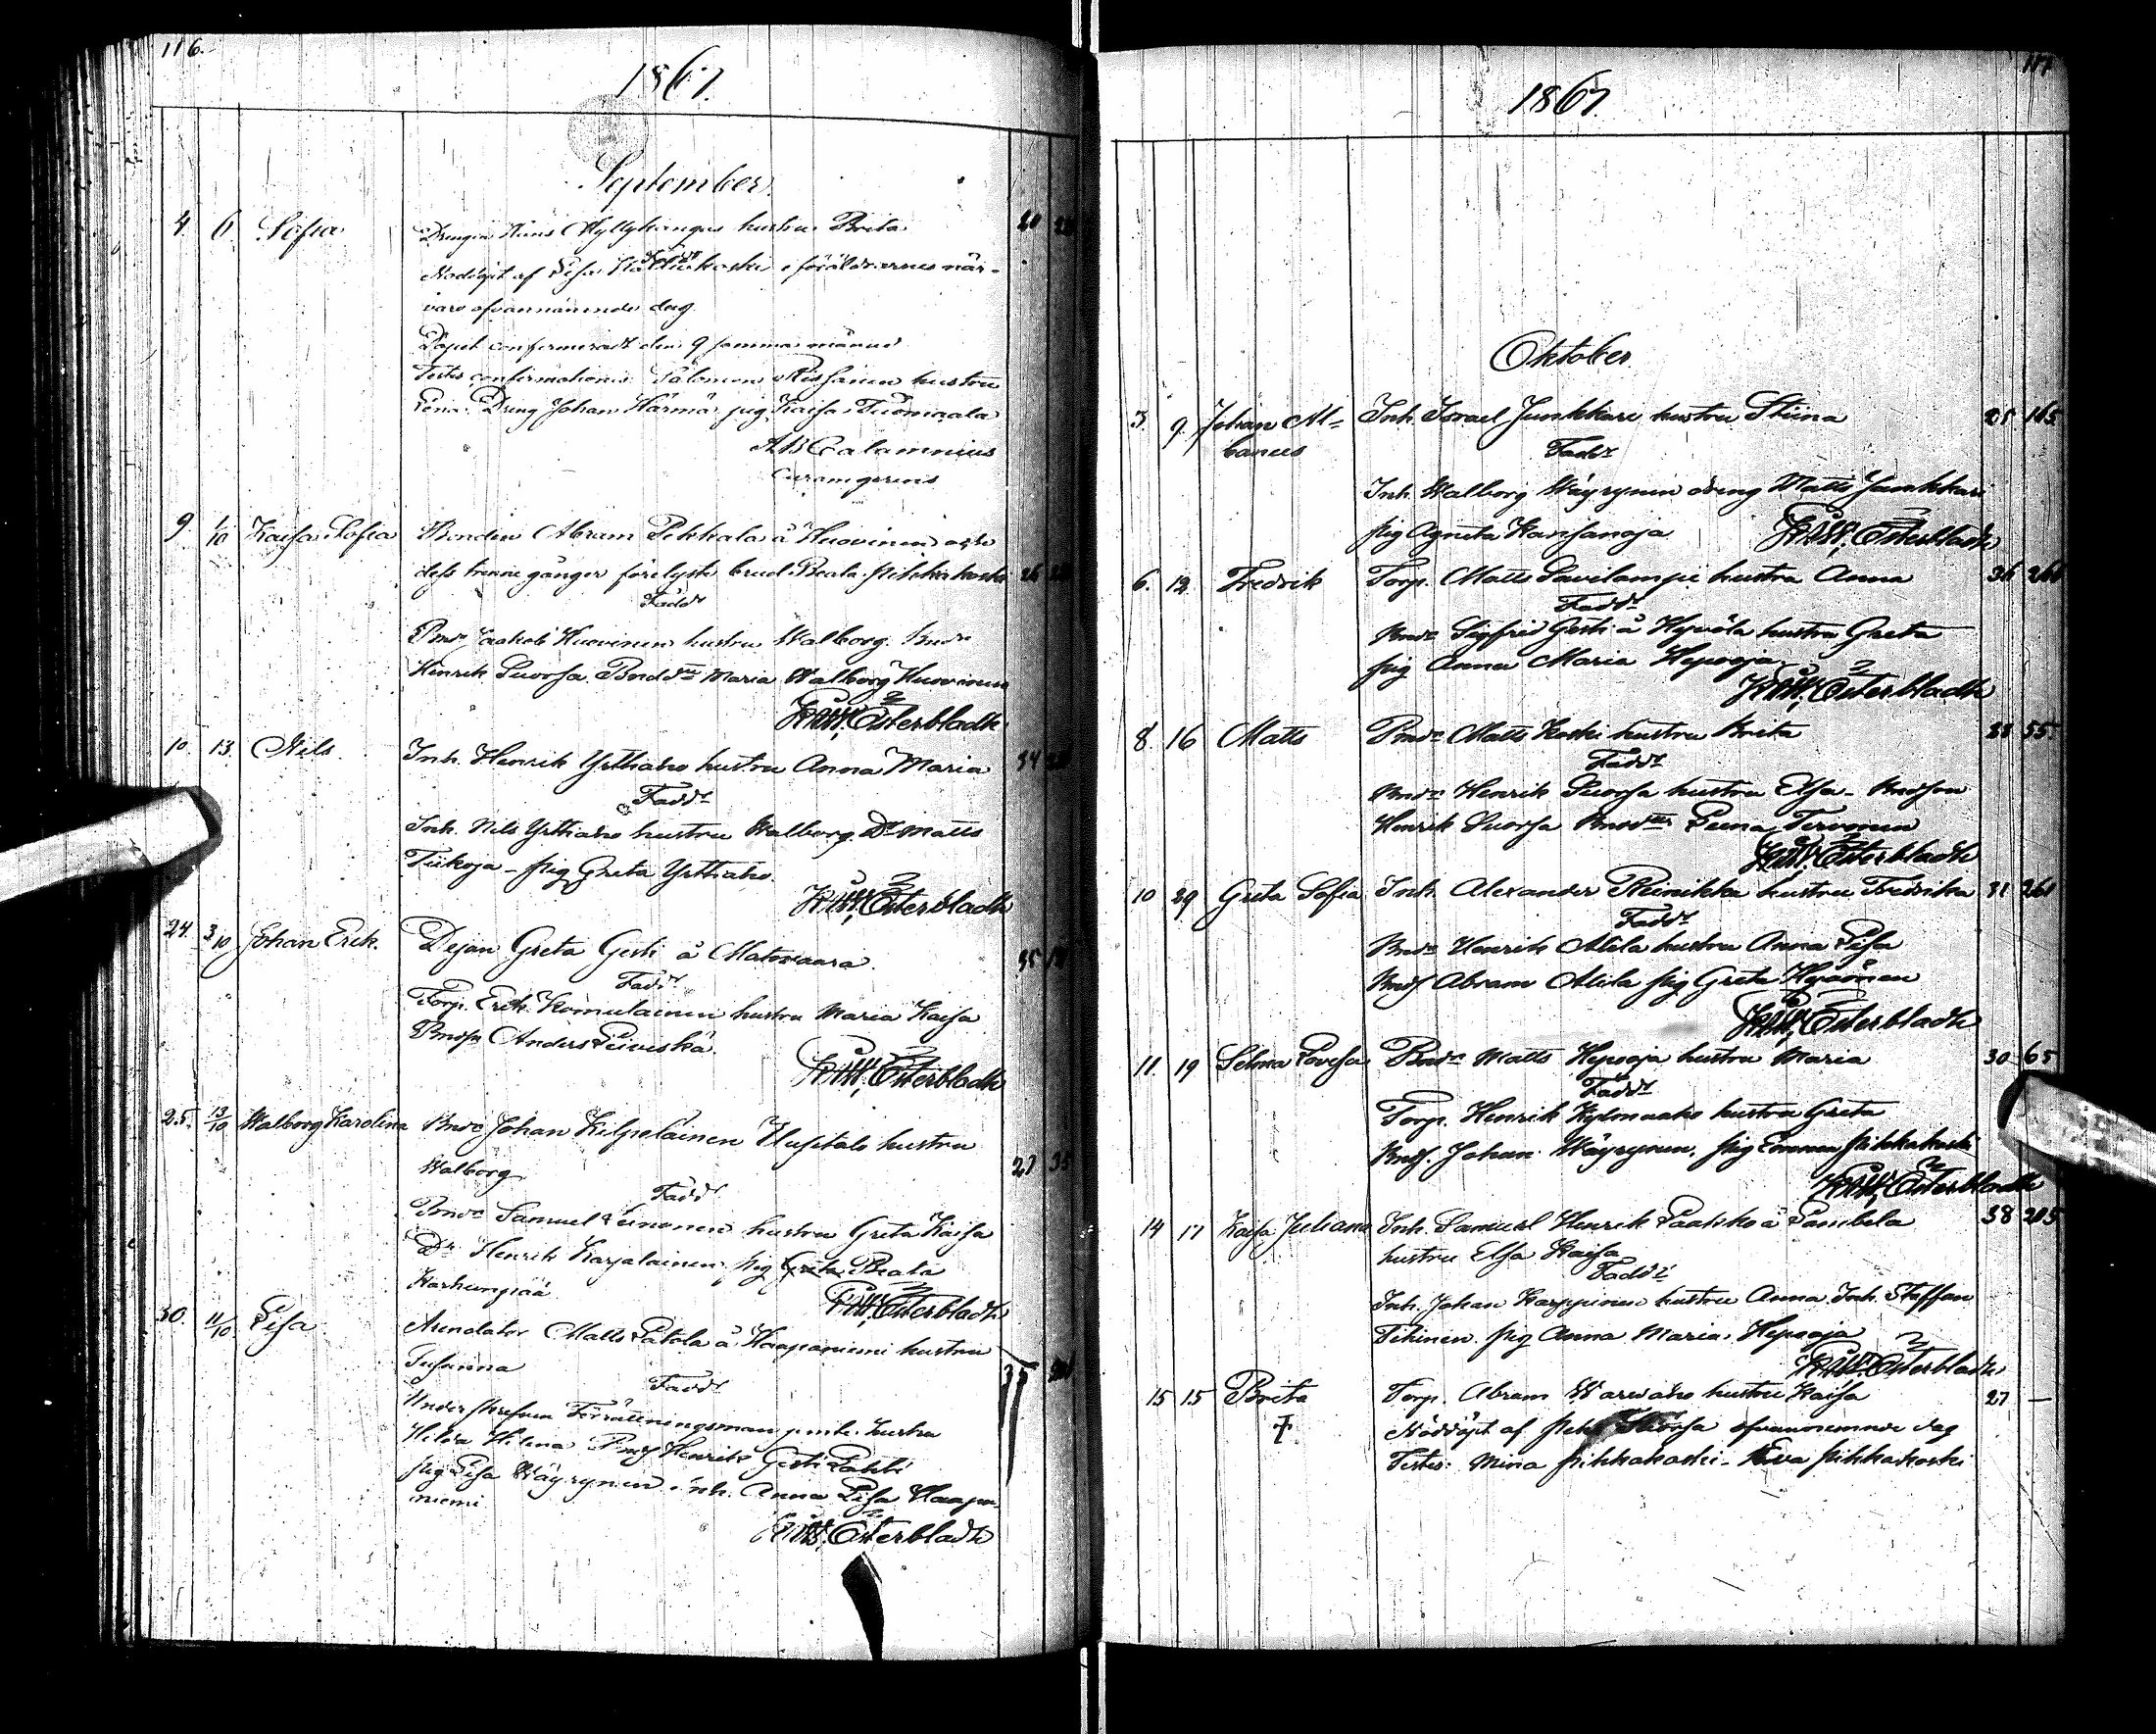 116.
1867.
September.
4. 6. Sofia Drengen Hans Hyllykangas hustru Brita 20
Nöddöpt af Lisa i föräldrarnes när-
varo ofvannämnde dag.
Döpet confirmeradt den 9 samma månad
Testes confirmationis: Salomon hustru
Lena. Dreng Johan Härmä pig Kaisa Tuomaala
AB Calamnius
Curam gerens
9 1/10 Kaisa Sofia Bonden Abram Pekkala å Huovinen och
dess trenne gånger förelyste brud Beata Pikkakoski 26
Faddr
Bnde Jaakob Huovinen hustru Walborg. Bnde
Henrik Suorsa Bnddtr Maria Walborg Huovinen
Österbladh
10. 13. Nils Inh. Henrik Yrttiaho hustru Anna Maria 34
Faddr
Inh. Nils Yrttiaho hustru Walborg. Dr Matts
Tiikoja - pig Greta Yrttiaho.
Österbladh
24. 3/10 Johan Erik. Dejan Greta Gesti å Matovaara. 35
Faddr
Torp. Erik Komulainen hustru Maria Kaisa
Bnds Anders
Österbladh
25. 13/10 Walborg Karolina Bnde Johan Kilpeläinen Uusitalo hustru
Walborg 27 35
Faddr
Bnde Samuel Leinonen hustru Greta Kaisa
Dr Henrik Karjalainen, pig Greta Beata
Karhunpää
Österbladh
30. 11/10 Lisa Arendator Matts Latola å Haapaniemi hustru
Susanna 35
Faddr
Underskrefven Förrättningsman hustru
Hilda Helena Bnds Henrik Gesti Lahti
pig Lisa Wäyrynen inh. Anna Lisa Haapa-
niemi
Österbladh
117
1867.
Oktober.
3. 9. Johan Al- Inh. Israel Junkkari hustru Stina 25 165
banus
Faddr
Inh. Walborg Wäyrynen dreng Matts Junkkari
pig Agneta Kansanoja Österbladh
6. 12 Fredrik Torp. Matts Savilampi hustru Anna 36 261
Faddr
Bnde Sigfrid Gesti å Hyvölä hustru Greta
pig Anna Maria Heposoja
Österbladh
8. 16 Matts Bnde Matts Koski hustru Brita 28 55
Faddr
Bnde Henrik Suorsa hustru Elsa - Bndson
Henrik Suorsa Bnddtr Leena Tervonen
Österbladh
10 29 Greta Sofia Inh. Alexander Reinikka hustru Fredrika 31 261
Faddr
Bnde Henrik Alila hustru Anna Lisa
Bnds Abram Alila pig Greta Hyvönen
Österbladh
11. 19 Selma Lovisa Bnde Matts Heposoja hustru Maria 30 65
Faddr
Torp. Henrik Kylmäaho hustru Greta
Bnds. Johan Wäyrynen, pig Emma Pikkakoski
Österbladh
14 17 Kaisa Juliana Inh. Samuel Henrik Laakko å Pambela 38 205
hustru Elsa Kaisa
Faddr
Inh. Johan Karppinen hustru Anna. Inh. Staffan
Tihinen pig Anna Maria Heposoja
Österbladh
15 15 Brita Torp. Abram Warwaho hustru Kaisa 27 —
† Nöddöpt af Suorsa ofvannämnde dag
Testes: Mina Pikkakoski - Eva Pikkakoski